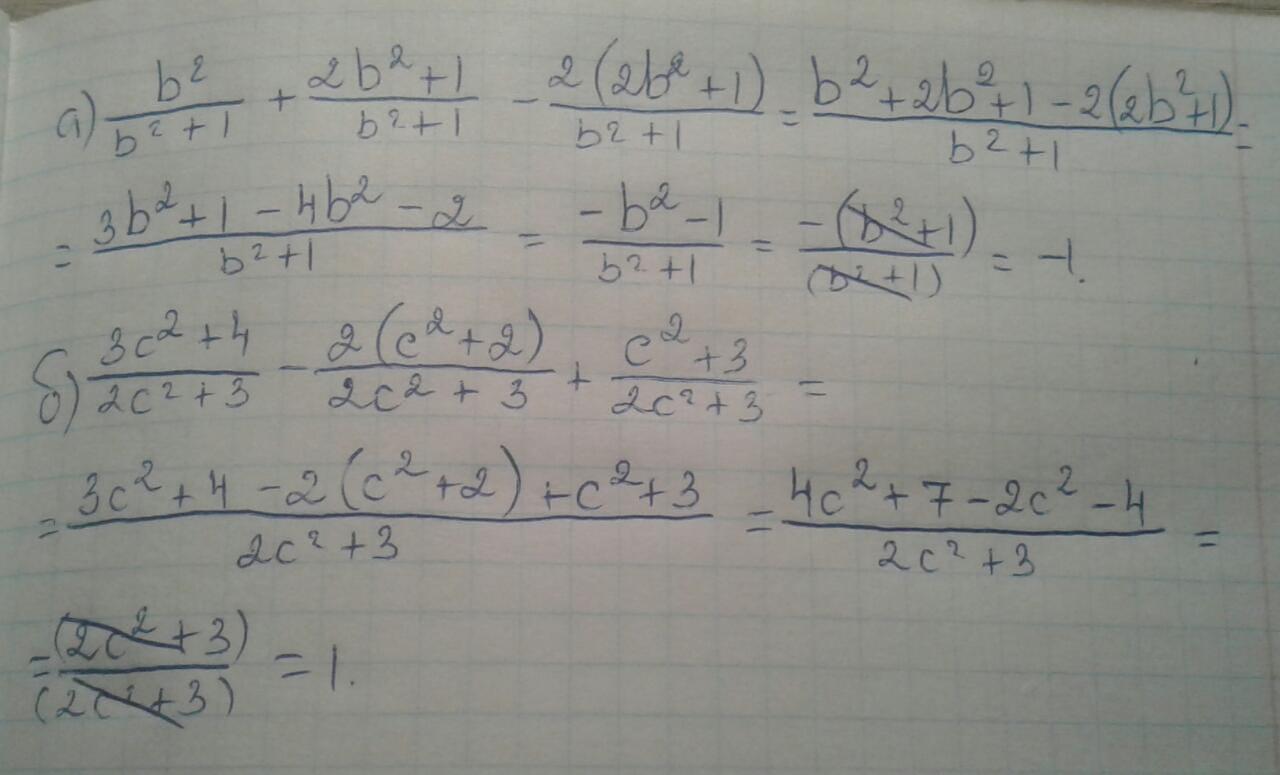 а) b²/(b²+1) + (2b²+1)/(b²+1) - 2(2b²+1)/(b²+1) = (b²+2b²+1-2(2b²+1))/(b²+1) =
= (3b²+1-4b²-2)/(b²+1) = (-b²-1)/(b²+1) = -(b²+1)/(b²+1) = -1.
б) (3c²+4)/(2c²+3) - 2(c²+2)/(2c²+3) + (c²+3)/(2c²+3) =
= (3c²+4-2(c²+2)+c²+3)/(2c²+3) = (4c²+7-2c²-4)/(2c²+3) =
= (2c²+3)/(2c²+3) = 1.